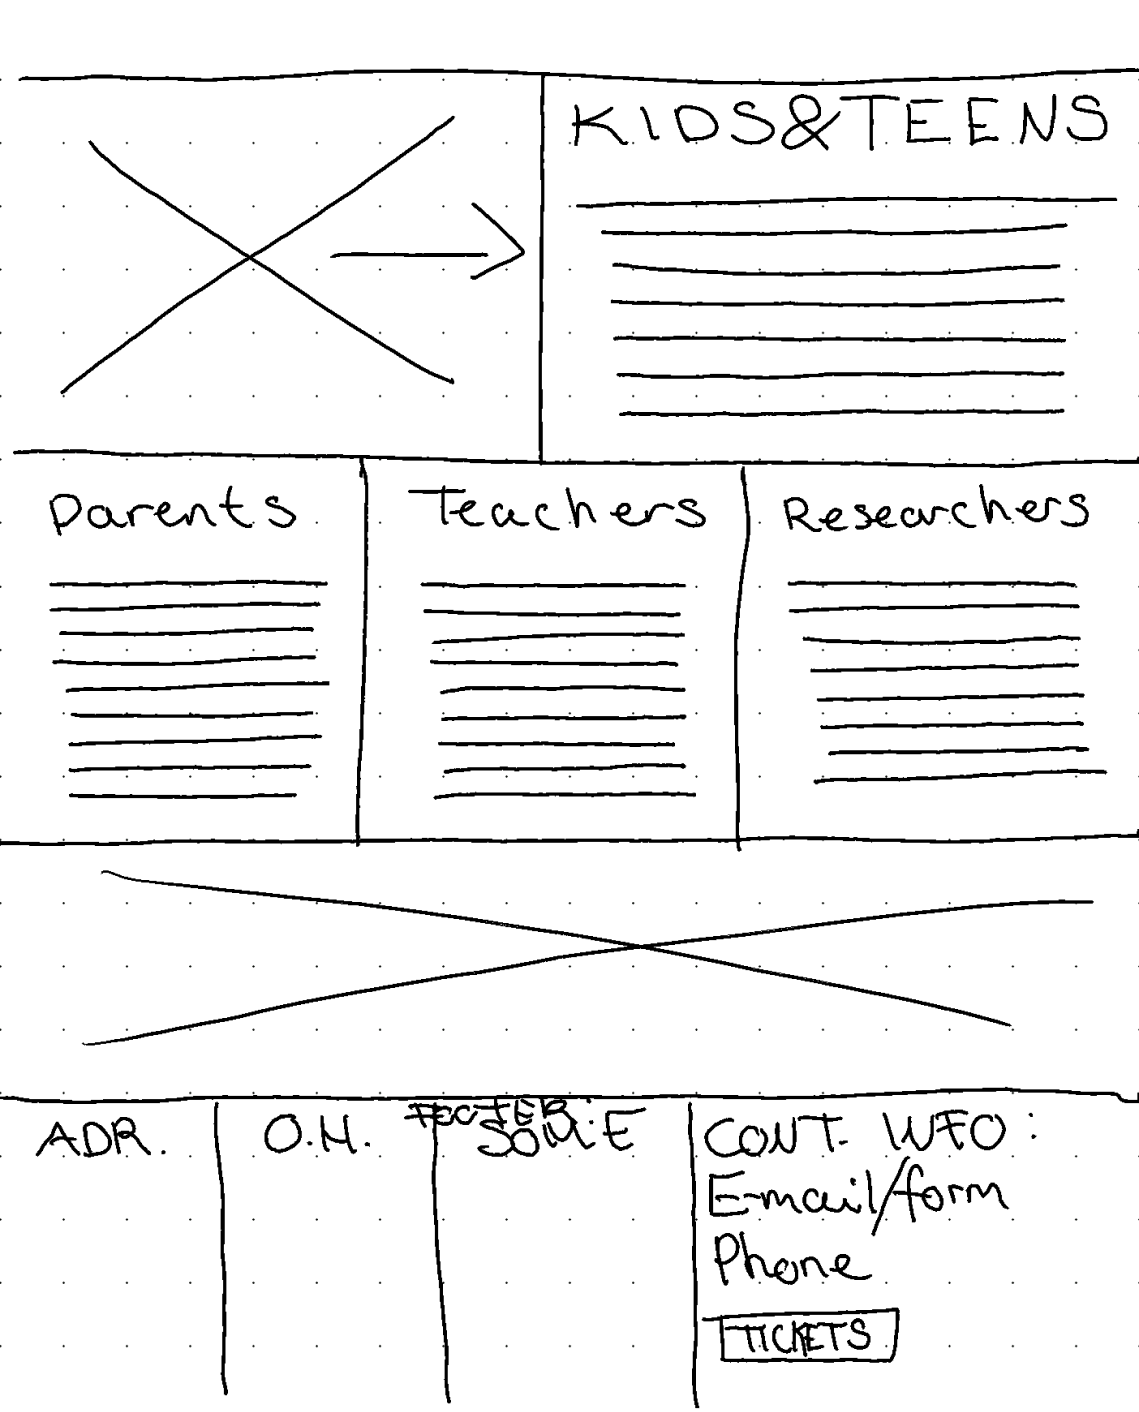 KIDS&TEENS
Parents
Teachers
Researchers
FOOTER
ADR.
O.H.
SOME
CONT. INFO:
E-mail/form
Phone
TICKETS